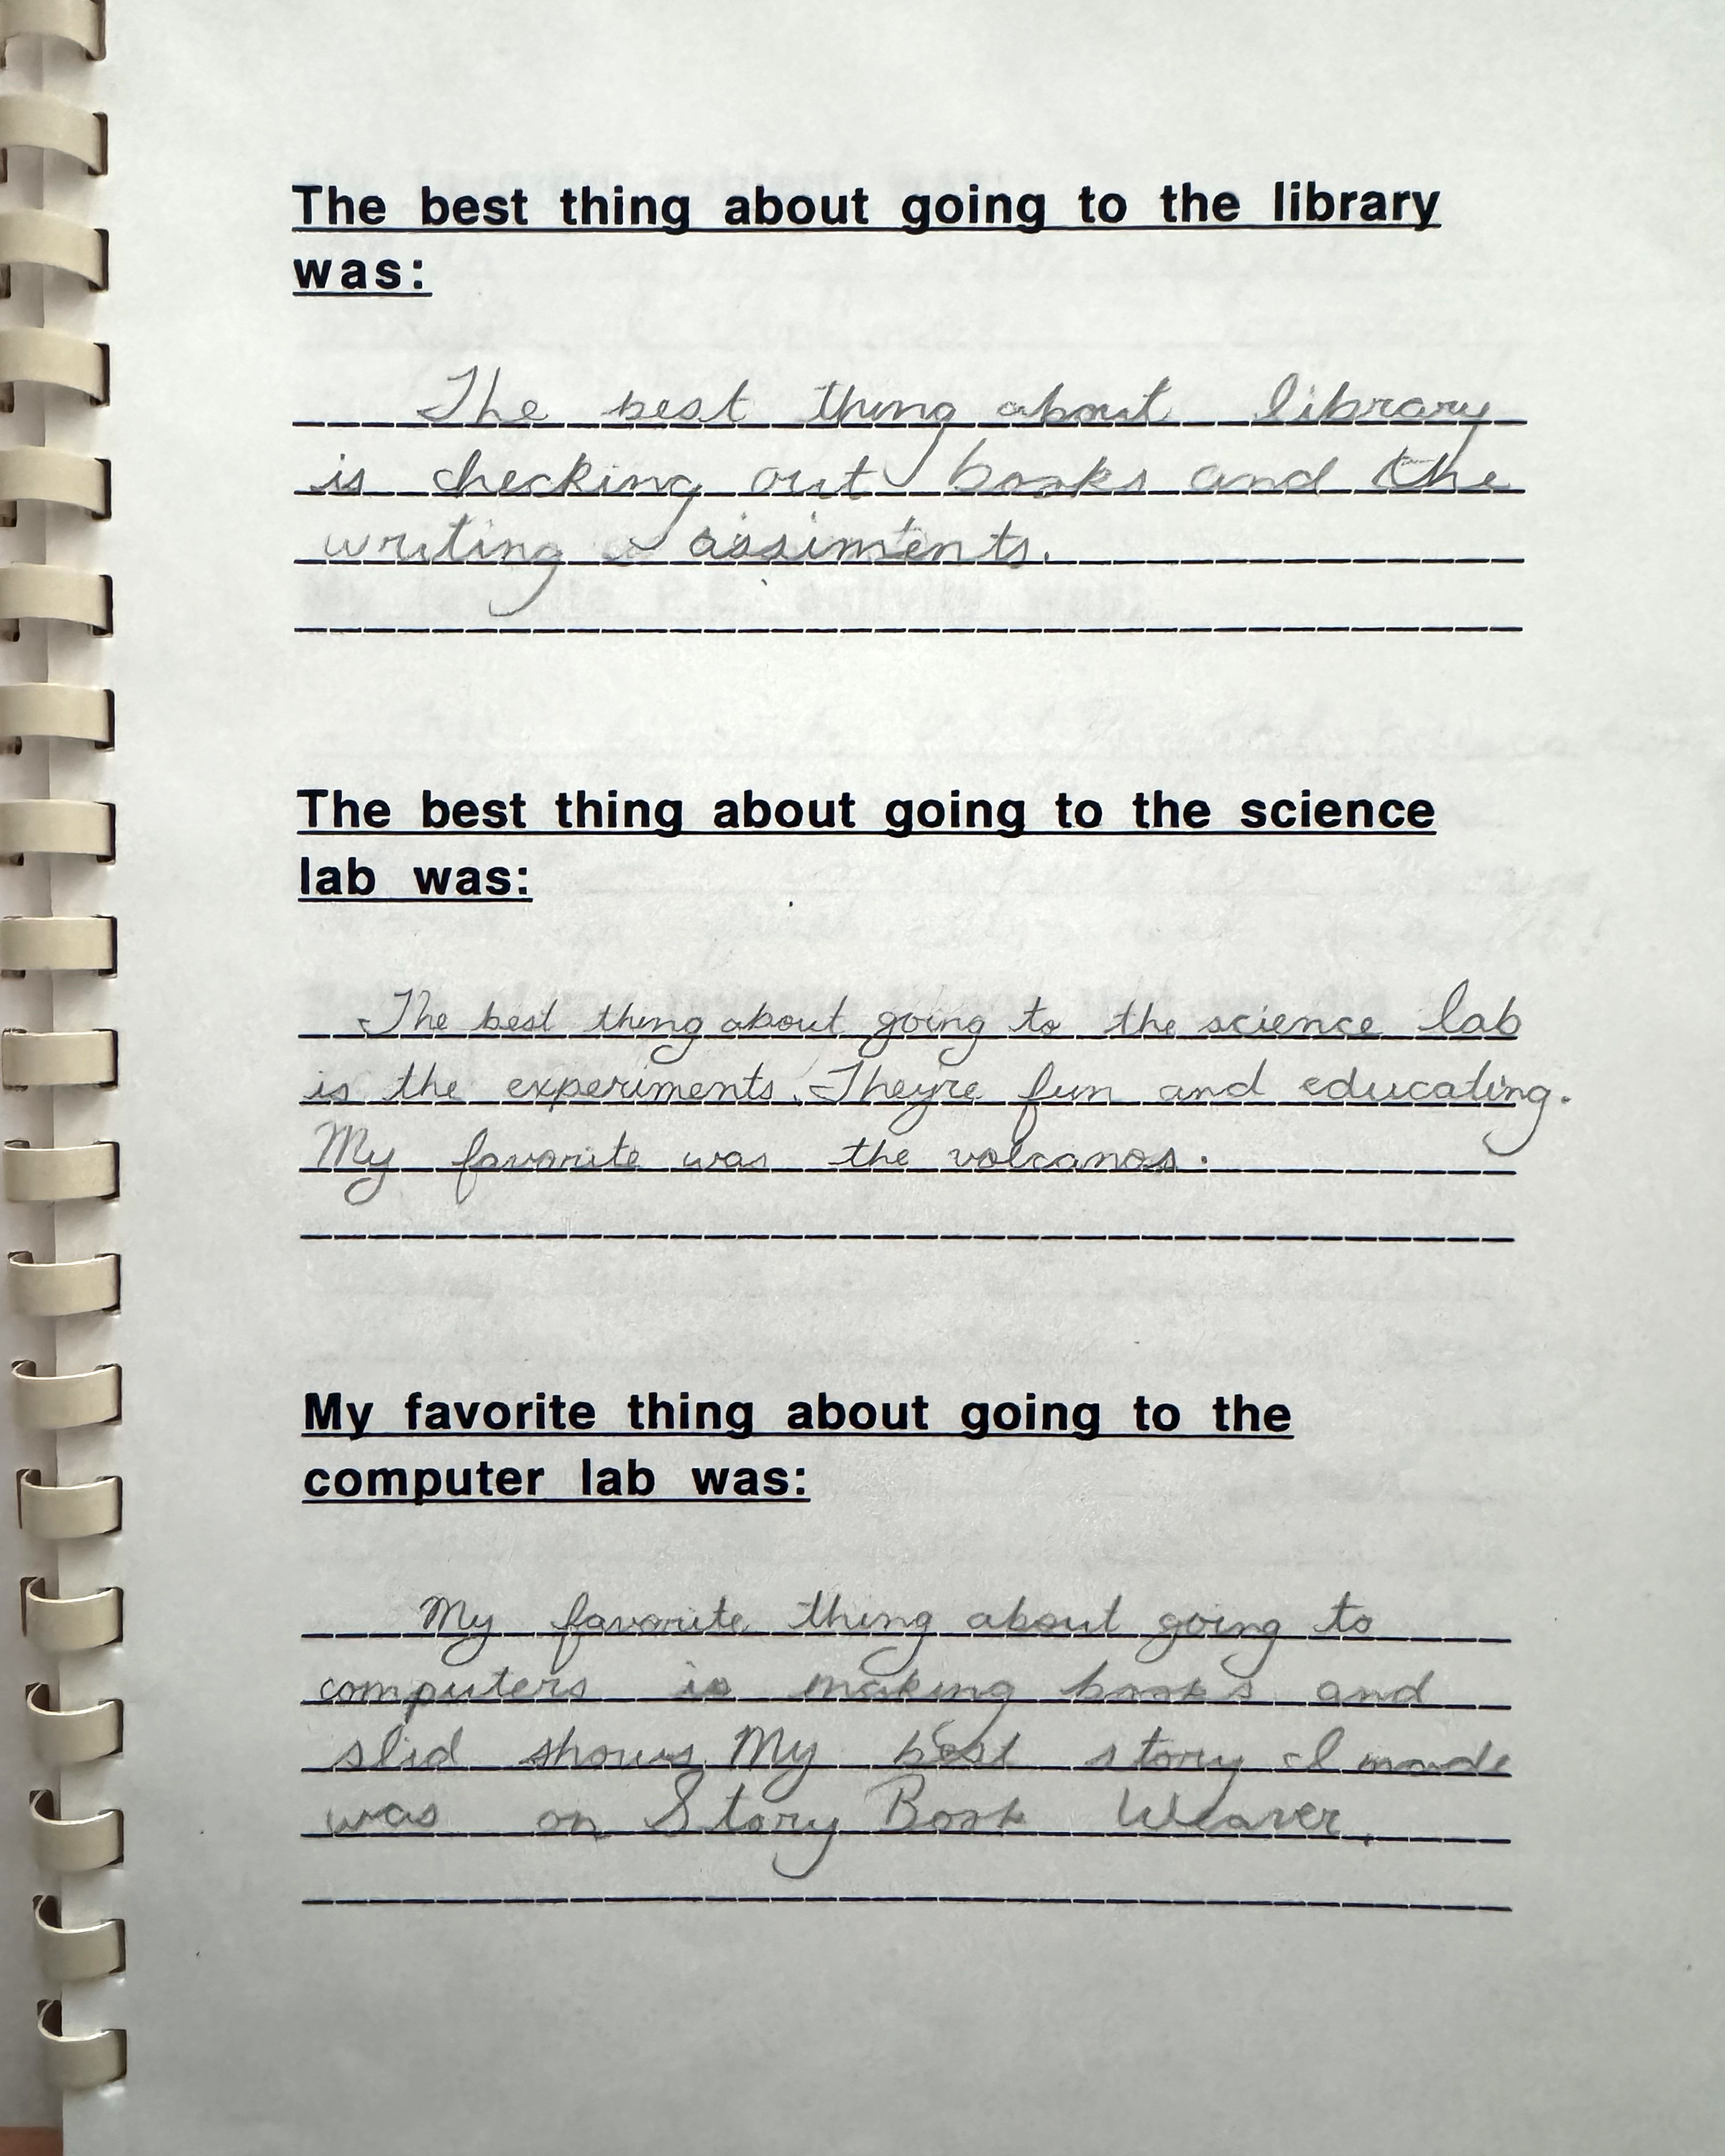 The best thing about going to the library
was:
The best thing about library
is checking out books and the
writing assiments.
The best thing about going to the science
lab was:
The best thing about going to the science lab
is the experiments. Theyre fun and educating.
My favorite was the volcanos.
My favorite thing about going to the
computer lab was:
My favorite thing about going to
computers is making books and
slid shows. My best story I made
was on Story Book Weaver.